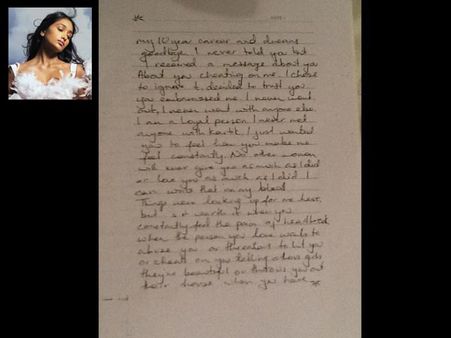 my 10 year career and dreams
goodbye. I never told you but
I received a message about you
About you cheating on me. I chose
to ignore it, decided to trust you
you embarrassed me. I never went
out, I never went with anyone else
I am a Loyal person. I never met
anyone with Kartik, I just wanted
you to feel how you make me
feel constantly. No other woman
will ever give you as much as I did
or love you as much as I did! I
can write that in my blood
Things were looking up for me here,
but is it worth it when you
constantly feel the pain of heartbreak
when the person you love wants to
abuse you or threatens to hit you
or cheats on you telling others girls
they're beautiful or throws you out
their house when you have